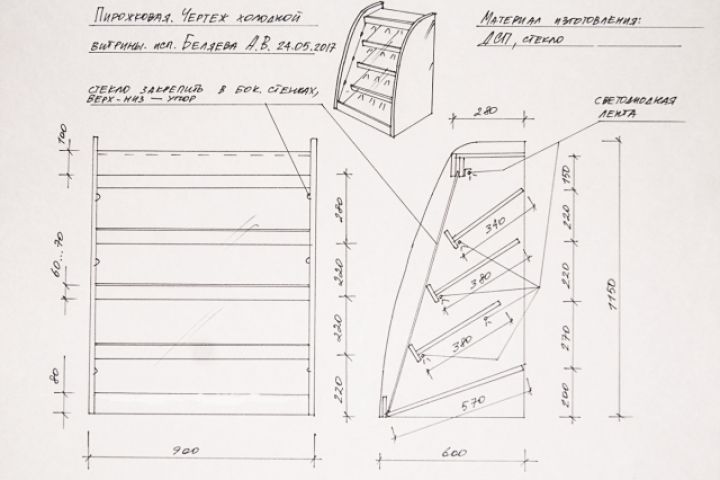 Пирожковая. Чертеж холодной
витрины. исп. Беляева А.В. 24.05.2017
Материал изготовления:
ДСП, стекло
стекло закрепить в бок. стенках,
верх-низ — упор
светодиодная
лента
100
60...70
80
280
220
220
220
900
280
340
380
380
570
600
150
220
220
270
200
1150